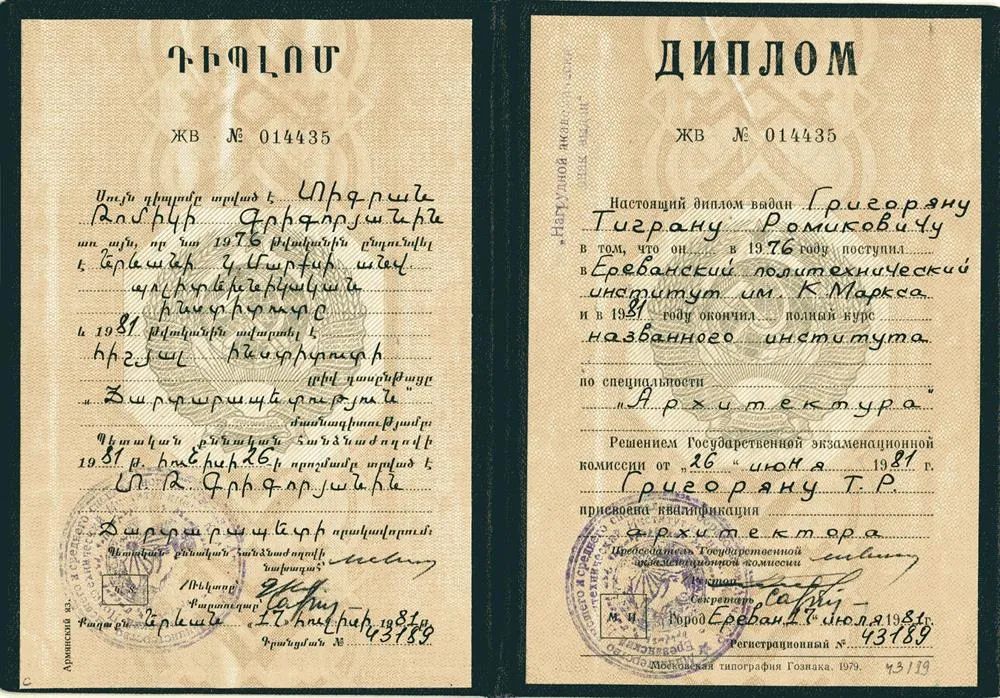 ԴԻՊԼՈՄ
ЖВ № 014435
Սույն դիպլոմը տրված է Տիգրան
Ռոմիկի Գրիգորյանին
առ այն, որ նա 1976 թվականին ընդունվել
է Երևանի Կ. Մարքսի անվ.
պոլիտեխնիկական
ինստիտուտը
և 1981 թվականին ավարտել է
հիշյալ ինստիտուտի
լրիվ դասընթացը
„Ճարտարապետություն“
մասնագիտությամբ:
Պետական քննական հանձնաժողովի
1981 թ. հունիսի 26-ի որոշմամբ տրված է
Տ. Ռ. Գրիգորյանին
Ճարտարապետի որակավորում:
Պետական քննական հանձնաժողովի
նախագահ
Ռեկտոր
Քարտուղար
Քաղաք Երևան „17“ հուլիսի 1981 թ.
Գրանցման № 43189
Армянский яз.
ДИПЛОМ
ЖВ № 014435
„Нагрудной
знак выдан“
Настоящий диплом выдан Григоряну
Тиграну Ромиковичу
в том, что он в 1976 году поступил
в Ереванский политехнический
институт им. К Маркса
и в 1981 году окончил полный курс
названного института
по специальности
„Архитектура“
Решением Государственной экзаменационной
комиссии от „26“ июня 1981 г.
Григоряну Т. Р.
присвоена квалификация
архитектора
Председатель Государственной
экзаменационной комиссии
Ректор
Секретарь
М. П.
Город Ереван 17 июля 1981 г.
Регистрационный № 43189
Московская типография Гознака. 1979.
43189